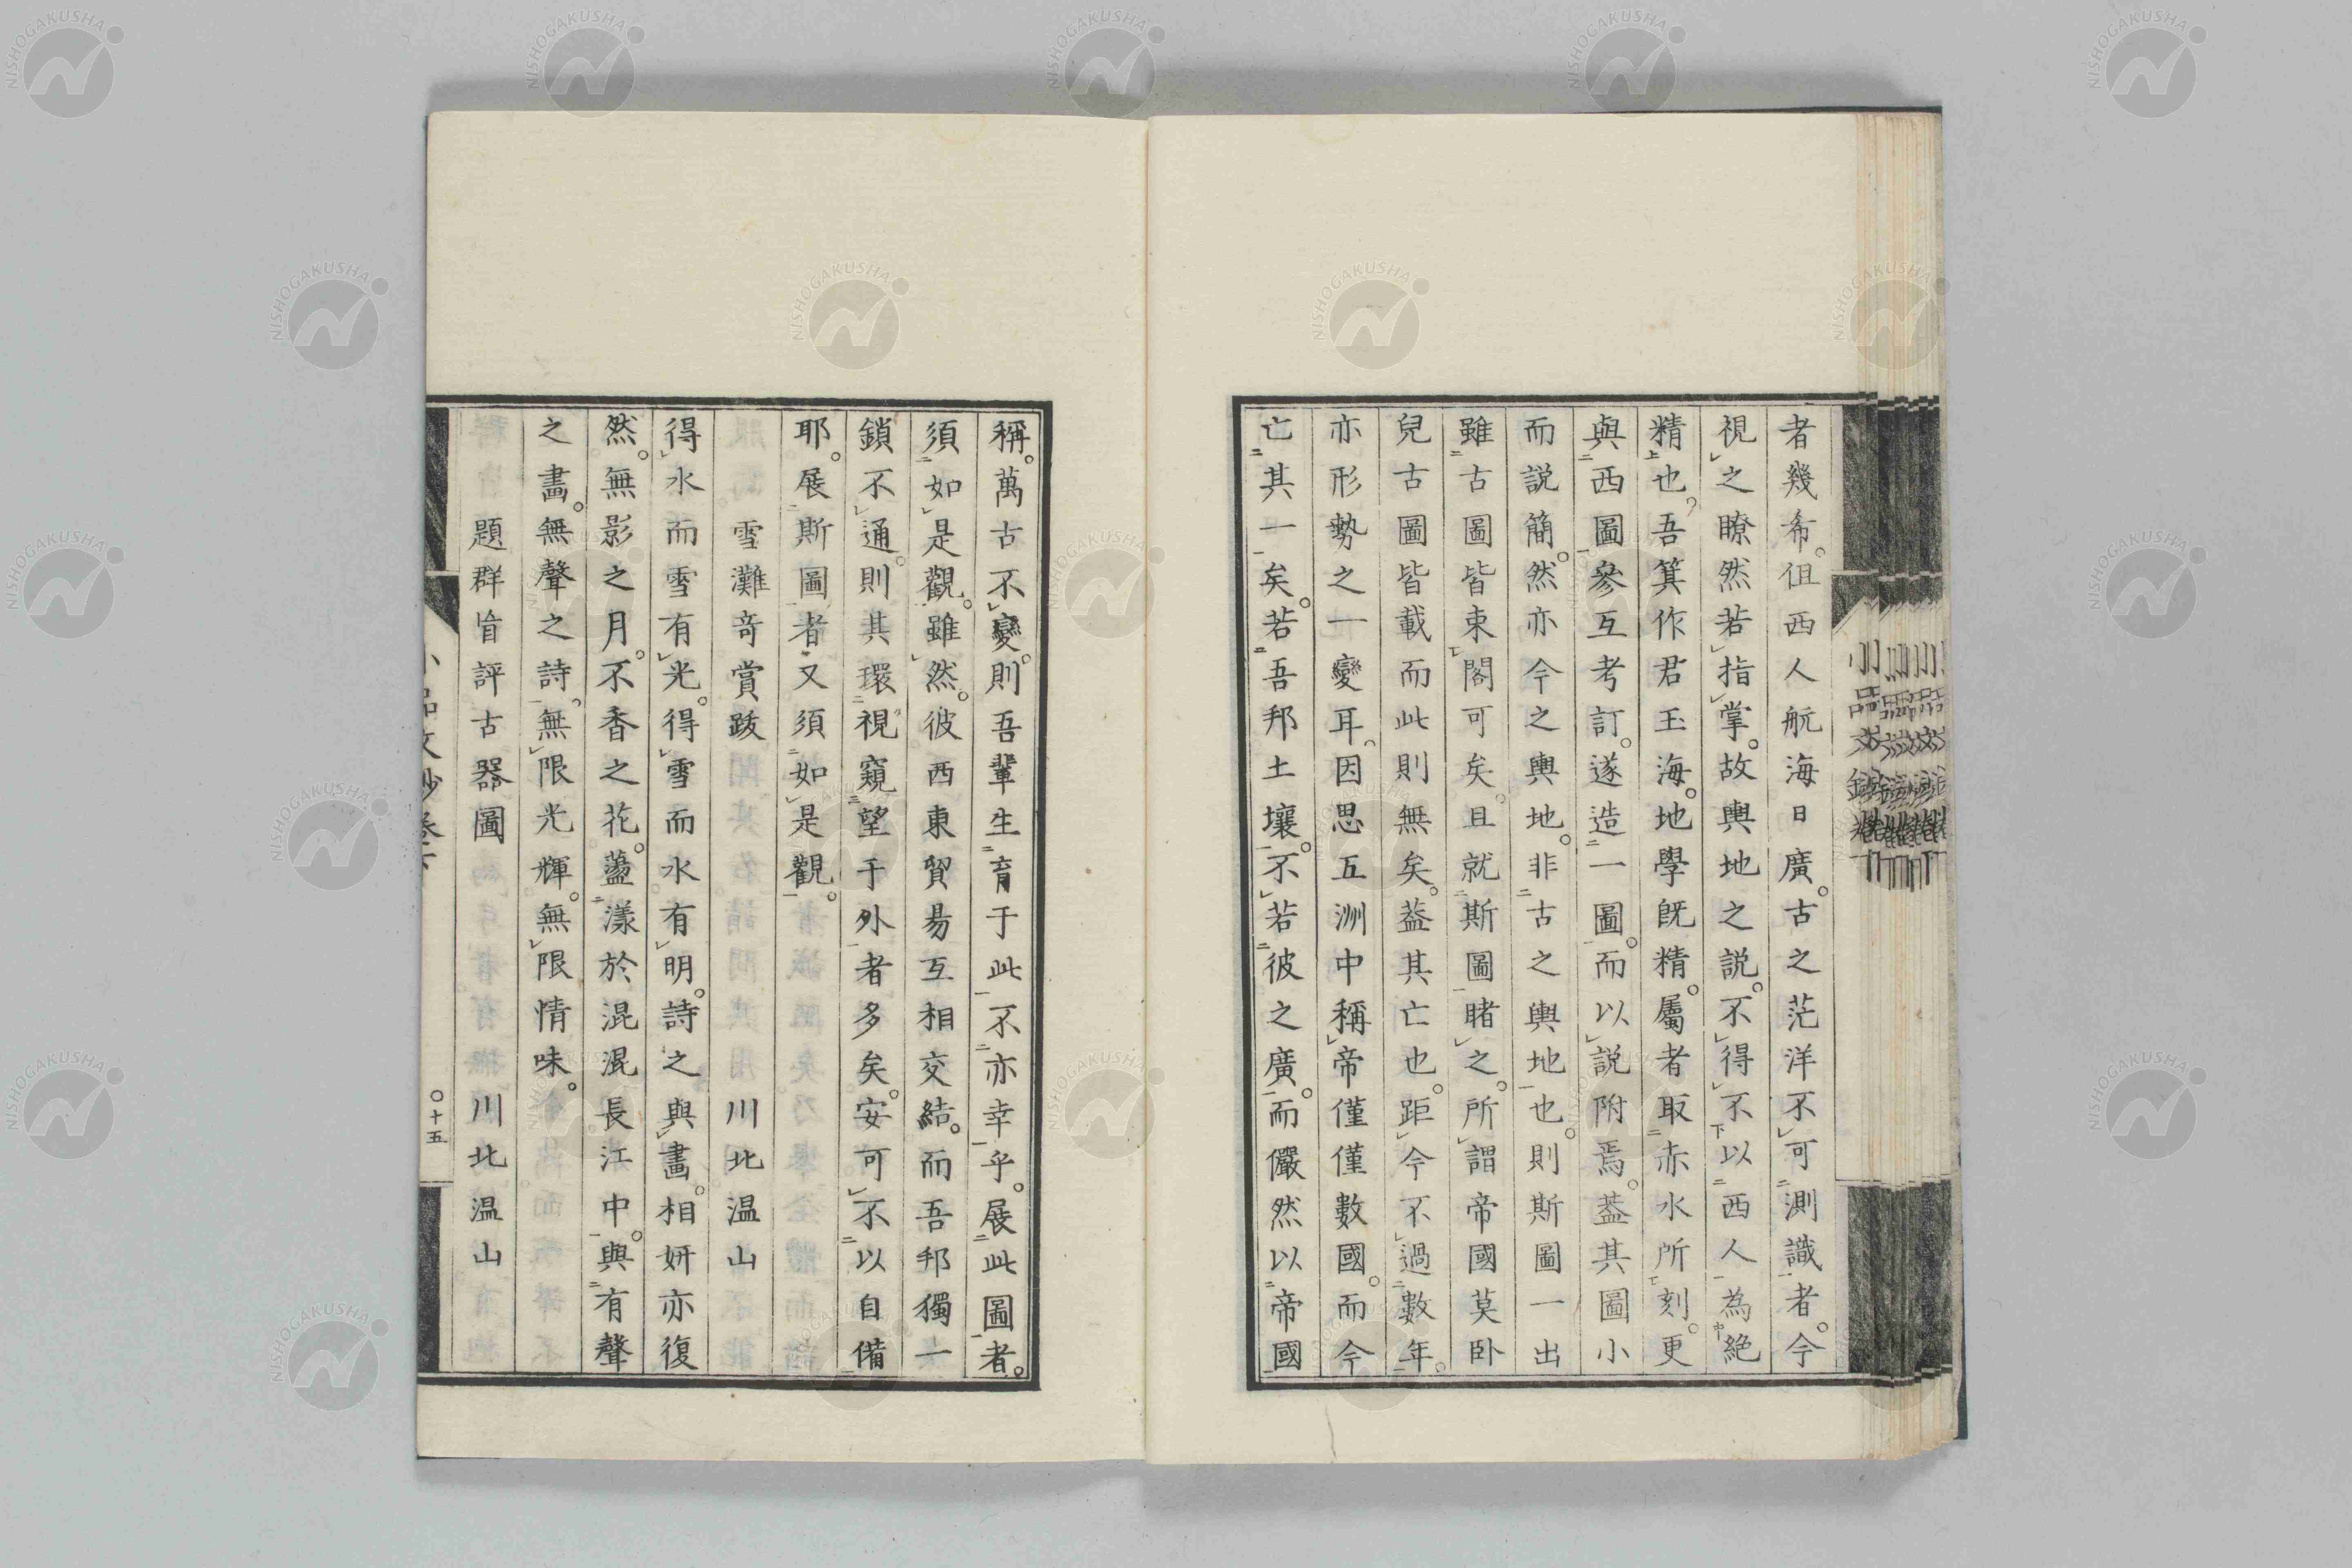 者幾希。但西人航海日廣。古之茫洋不可測識者。今
視之瞭然若指掌。故輿地之説。不得不以西人為絶
精也。吾箕作君玉海。地學既精。屬者取赤水所刻。更
與西圖參互考訂。遂造一圖。而以説附焉。葢其圖小
而説簡。然亦今之輿地。非古之輿地也。則斯圖一出
雖古圖皆束閣可矣。且就斯圖睹之。所謂帝國莫卧
兒古圖皆載而此則無矣。葢其亡也。距今不過數年。
亦形勢之一變耳。因思五洲中稱帝僅僅數國。而今
亡其一矣。若吾邦土壤。不若彼之廣。而儼然以帝國
稱。萬古不變。則吾輩生育于此不亦幸乎。展此圖者。
須如是觀。雖然。彼西東貿易互相交結。而吾邦獨一
鎖不通。則其環視窺望于外者多矣。安可不以自備
耶。展斯圖者又須如是觀。
雪灘奇賞跋 川北温山
得水而雪有光。得雪而水有明。詩之與畫。相妍亦復
然。無影之月。不香之花。蘯漾於混混長江中。與有聲
之畫。無聲之詩。無限光輝。無限情味。
題群旹評古器圖 川北温山
小品文鈔卷下
〇十五
NISHOGAKUSHA